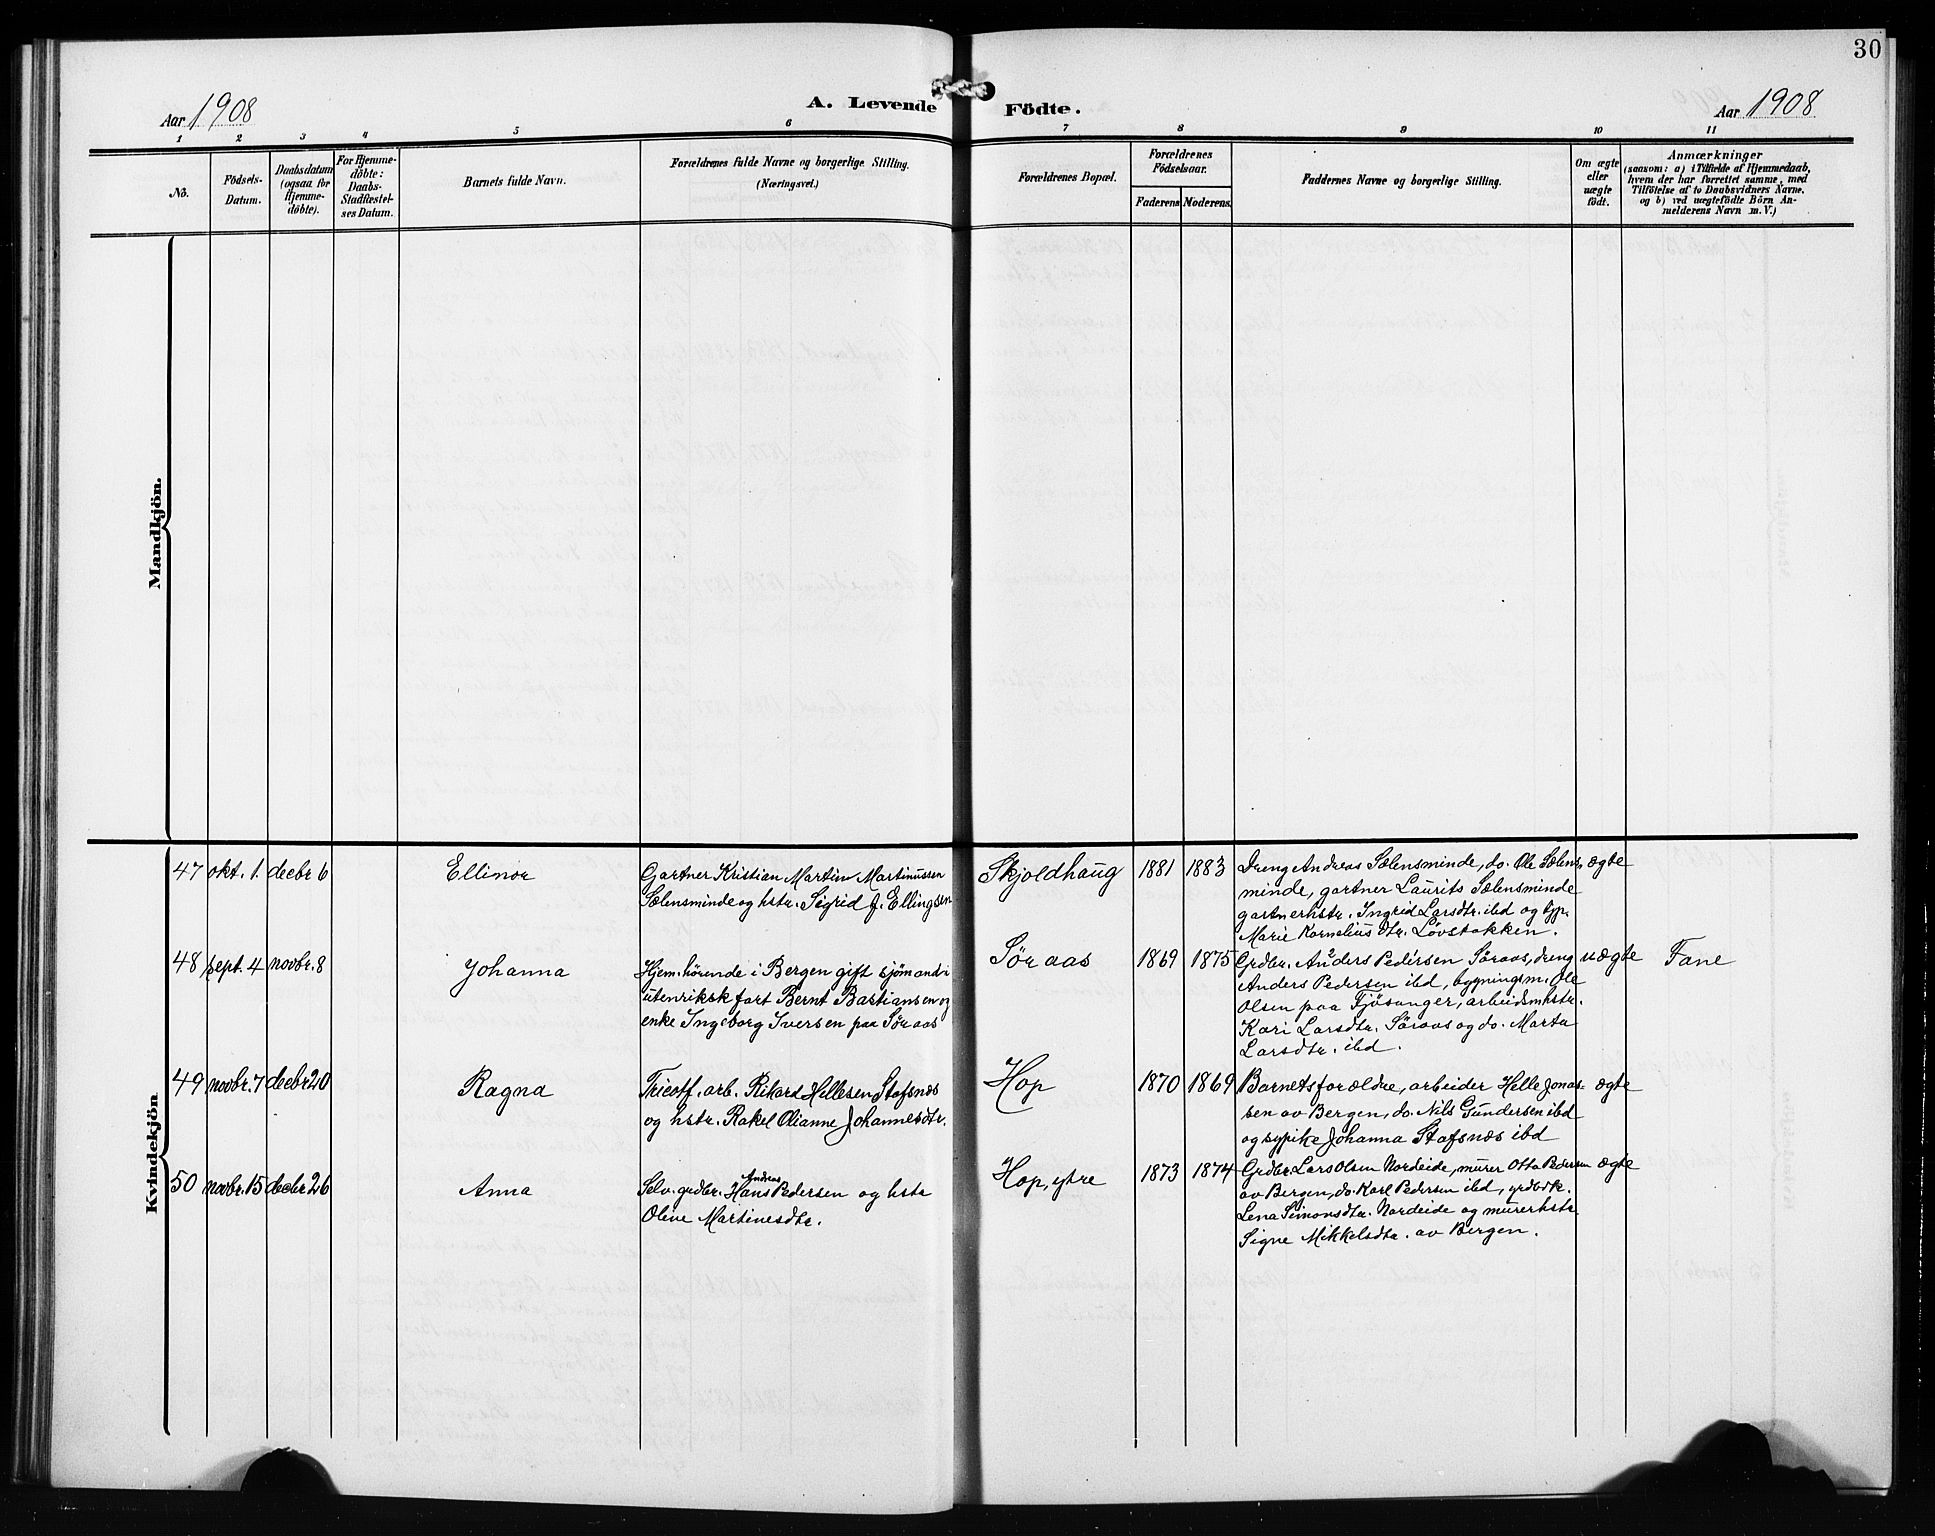 30
Aar 1908
A. Levende Födte.
Aar 1908
1 2 3 4 5 6 7 8 9 10 11
No.
Födsels-
Datum.
Daabsdatum
(ogsaa for
Hjemme-
döbte).
For Hjemme-
döbte:
Daabs-
Stadfæstel-
ses Datum.
Barnets fulde Navn.
Forældrenes fulde Navne og borgerlige Stilling.
(Næringsvei.)
Forældrenes Bopæl.
Forældrenes
Födselsaar.
Faderens
Moderens.
Faddernes Navne og borgerlige Stilling.
Om ægte
eller
uægte
födt.
Anmærkninger
(saasom: a) i Tilfælde af Hjemmedaab,
hvem der har forrettet samme, med
Tilföielse af to Daabsvidners Navne,
og b) ved uægtefödte Börn An-
melderens Navn m.V.)
Mandkjön.
Kvindekjön
47 okt. 1. decbr 6
Ellinor
Gartner Kristian Martin Martinussen
Sælensminde og hstr. Sigrid J. Ellingsen
Skjoldhaug
1881 1883
Dreng Andreas Sælensminde, do. Ole Sælens-
minde, gartner Laurits Sælensminde
gartnerhstr. Ingrid Larsdtr. ibd og typ.
Marie Kornelius dtr. Løvstakken.
ægte
48 sept. 4 novbr. 8
Johanna
Hjemhørende i Bergen gift sjømand i
utenriksk fart Bernt Bastiansen og
enke Ingeborg Iversen paa Søraas
Søraas
1869 1875
Grdbr. Anders Pedersen Søraas, dreng
Anders Pedersen ibd, bygningsm. Ole
Olsen paa Fjøsanger, arbeidsmhstr.
Kari Larsdtr. Søraas og do. Marta
Larsdtr. ibd.
uægte
Fane
49 novbr. 7 decbr 20
Ragna
Tricotf. arb. Rikard Hellesen Stafsnæs
og hstr. Rakel Olianne Johannesdtr.
Hop
1870 1869
Barnets forældre, arbeider Helle Jonas-
sen av Bergen, do. Nils Gundersen ibd
og sypike Johanna Stafsnæs ibd
ægte
50 novbr. 15 decbr 26
Anna
Selv. grdbr. Hans Andreas Pedersen og hstr
Oline Martinesdtr.
Hop, ytre
1873 1874
Grdbr. Lars Olsen Nordeide, murer Otto Pedersen
av Bergen, do. Karl Pedersen ibd, grdbrk.
Lena Simonsdtr. Nordeide og murerhstr
Signe Mikkelsdtr. av Bergen.
ægte